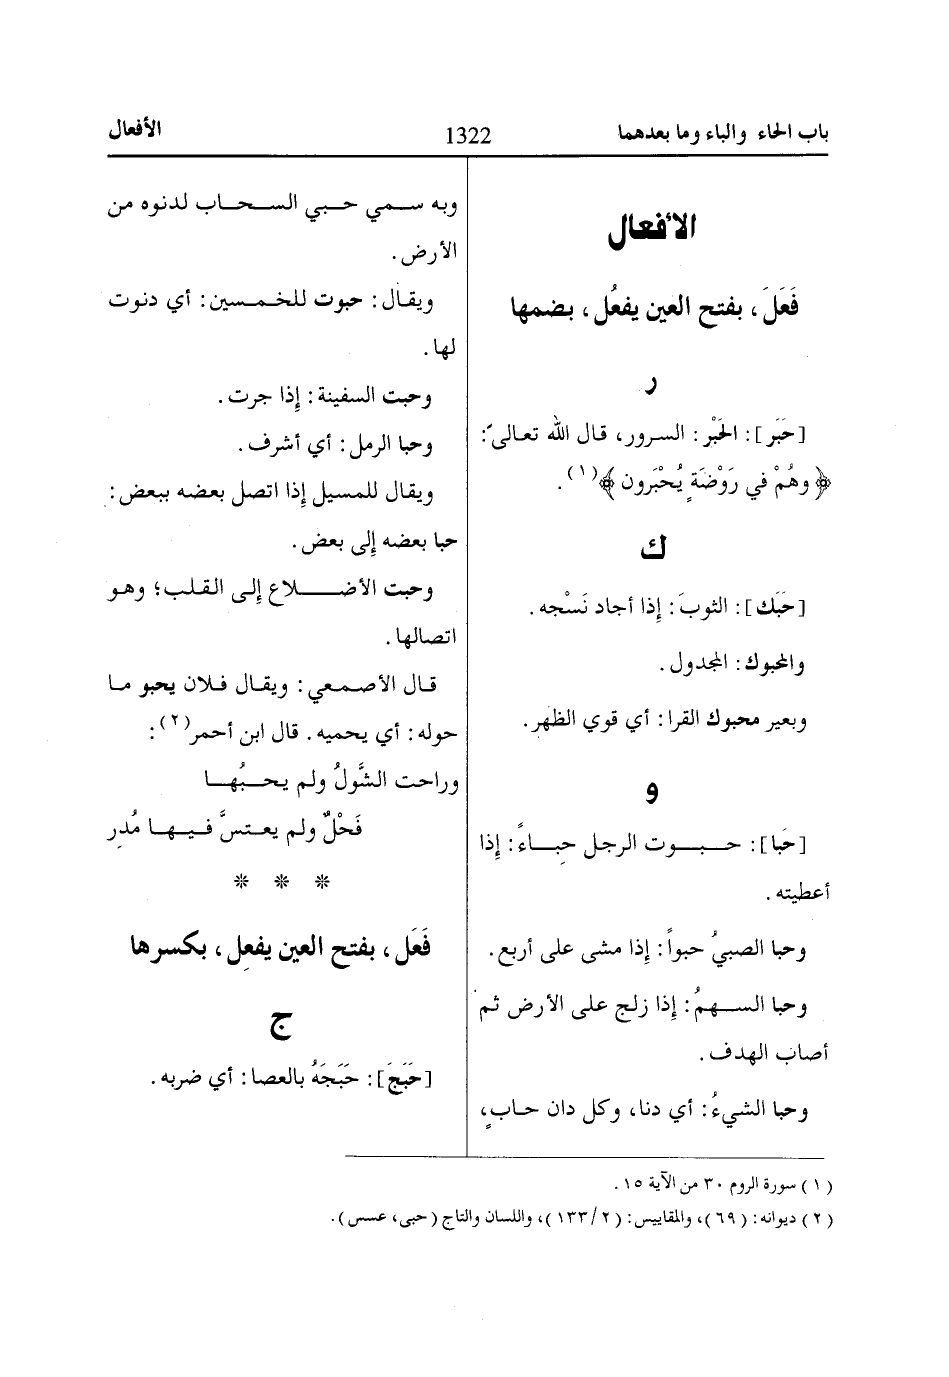 باب الحاء والباء وما بعدهما
1322
الأفعال
الأفعال
فَعَلَ، بفتح العين يفعُل، بضمها
ر
[حَبَر]: الحَبْر: السرور، قال الله تعالى:
﴿وهُمْ في رَوْضَةٍ يُحْبَرون﴾(١).
ك
[حَبَك]: الثوبَ: إذا أجاد نَسْجه.
والمحبوك: المجدول.
وبعير محبوك القرا: أي قوي الظهر.
و
[حَبَا]: حبوت الرجل حِباءً: إذا
أعطيته.
وحبا الصبيُ حبواً: إذا مشى على أربع.
وحبا السهمُ: إذا زلج على الأرض ثم
أصاب الهدف.
وحبا الشيءُ: أي دنا، وكل دان حابٍ،
وبه سمي حبي السحاب لدنوه من
الأرض.
ويقال: حبوت للخمسين: أي دنوت
لها.
وحبت السفينة: إذا جرت.
وحبا الرمل: أي أشرف.
ويقال للمسيل إذا اتصل بعضه ببعض:
حبا بعضه إلى بعض.
وحبت الأضلاع إلى القلب؛ وهو
اتصالها.
قال الأصمعي: ويقال فلان يحبو ما
حوله: أي يحميه. قال ابن أحمر(٢):
وراحت الشَّولُ ولم يحبُها
فَحْلٌ ولم يعتسَّ فيها مُدِر
* * *
فَعَل، بفتح العين يفعِل، بكسرها
ج
[حَبَجَ]: حَبَجَهُ بالعصا: أي ضربه.
(١) سورة الروم ٣٠ من الآية ١٥.
(٢) ديوانه: (٦٩)، والمقاييس: (٢/ ١٣٣)، واللسان والتاج (حبى، عسس).